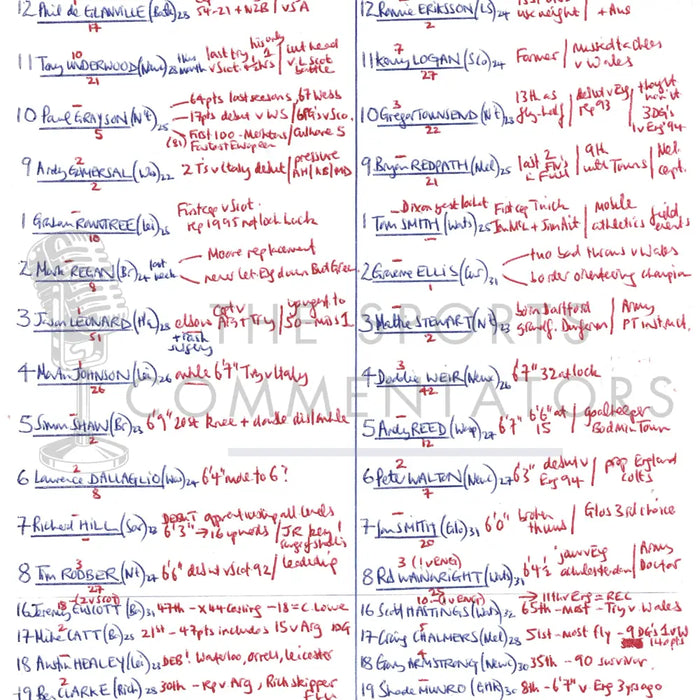 12 Phil de GLANVILLE (Bath) 28 54-21 + NZB / v SA
17
11 Tony UNDERWOOD (Newc) 28 last try v Scot
10
21
10 Paul GRAYSON (Nt) 25 64pts last season, 67 Webb
5
17pts debut v WS
First 100 -
Fastest European
9 Andy GOMERSAL (Wa) 22 2 Ts v Italy debut / pressure
2
AH/KB/MD
1 Graham ROWNTREE (Lei) 25 First cap v Scot
10
rep 1995 not look back
2 Mark REGAN (Br) 24 last week Moore replacement
8
never let Eng down
3 Jason LEONARD (Ha) 28 elbow Capt v Arg + Try / youngest to 50 - miss 1
1
51
+ rash surgery
4 Martin JOHNSON (Lei) 26 ankle 6'7" Try v Italy
1
26
5 Simon SHAW (Br) 23 6'9" 20st knee + double disl/ankle
2
6 Lawrence DALLAGLIO (Wa) 24 6'4" move to 6?
2
8
7 Richard HILL (Sar) 23 DEBUT apprent using all levels
6'3" → 16 upwards / JR key!
8 Tim RODBER (Nt) 27 6'6" debut v Scot 92 / leadership
3
27
16 Jeremy GUSCOTT (Br) 31 47th - x44 Carling - 18 = C Lowe
18 (2 v Scot)
17 Mike CATT (Ba) 25 21st - 47pts includes 15 v Arg DG
2
18 Austin HEALEY (Lei) 23 DEB! Waterloo, Orrell, Leicester
19 Ben CLARKE (Rich) 28 30th - Rep v Arg, Rich skipper
2
12 Ronnie ERIKSSON (LS) 24 + Aus
2
11 Kenny LOGAN (Sco) 24 Former / missed tackles v Wales
7
27
10 Gregor TOWNSEND (Nt) 23 13th as fly-half / debut v Eng rep 93 / thought won it 3 DG's v Eng '94
3
22
9 Bryan REDPATH (Mel) 25 last 2 / 9th with Towns / Mel capt.
21
1 Tom SMITH (Wats) 25 First cap / mobile athletics / field events
2 Graeme ELLIS (Cur) 31 two bad throws v Wales
1
border orienteering champion
3 Mattie STEWART (Nt) 23 born Dartford / Army PT instruct.
2
4 Doddie WEIR (Newc) 26 6'7" 32 at lock
3
42
5 Andy REED (Wasp) 27 6'7" 6'6" at 15 / goalkeeper Badminton
12
6 Peter WALTON (Newc) 27 6'3" debut v Eng 94 / prop England Colts
2
7
7 Ian SMITH (Glo) 31 6'0" broken thumb / Glos 3rd choice
20
8 Rob WAINWRIGHT (Wats) 31 6'4½ / Army Doctor
3 (1 v ENG)
25
16 Scott HASTINGS (Wats) 32 65th - most - Try v Wales
10 - (1 v ENG)
→ 11th v Eng = REC
17 Craig CHALMERS (Mel) 28 51st - most fly - 9 DG's 1 v W
2
18 Gary ARMSTRONG (Newc) 30 35th - 90 survivor.
4
19 Shade MUNRO (GHK) 30 8th - 6'7" v Eng 3 yrs ago
THE SPORTS
COMMENTATORS